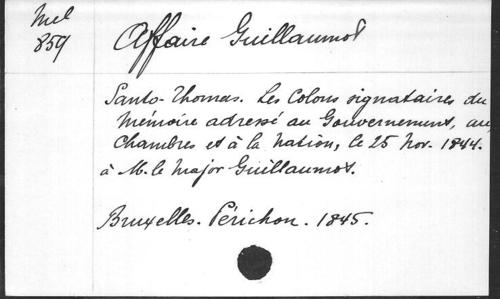 Mel
859
Affaire Guillaumot
Santo-Thomas. Les Colons signataires du
Mémoire adressé au Gouvernement, aux
Chambres et à la Nation, le 25 Nov. 1844.
à M. le Major Guillaumot.
Bruxelles. Périchon. 1845.